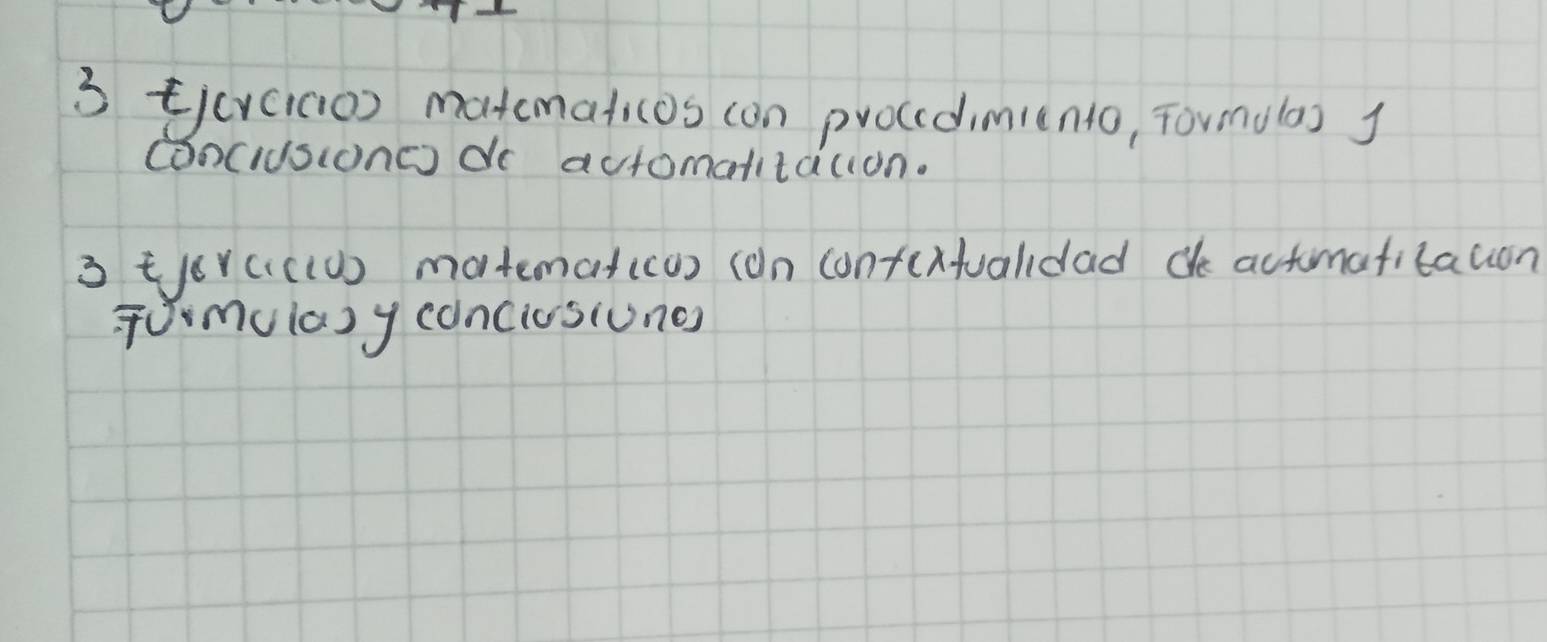 #1
3 Ejercicios matematicos con procedimiento, Formulas y
conclusiones de automatización.
3 Ejercicios matematicos con contextualidad de automatización
Formulas y conclusiones